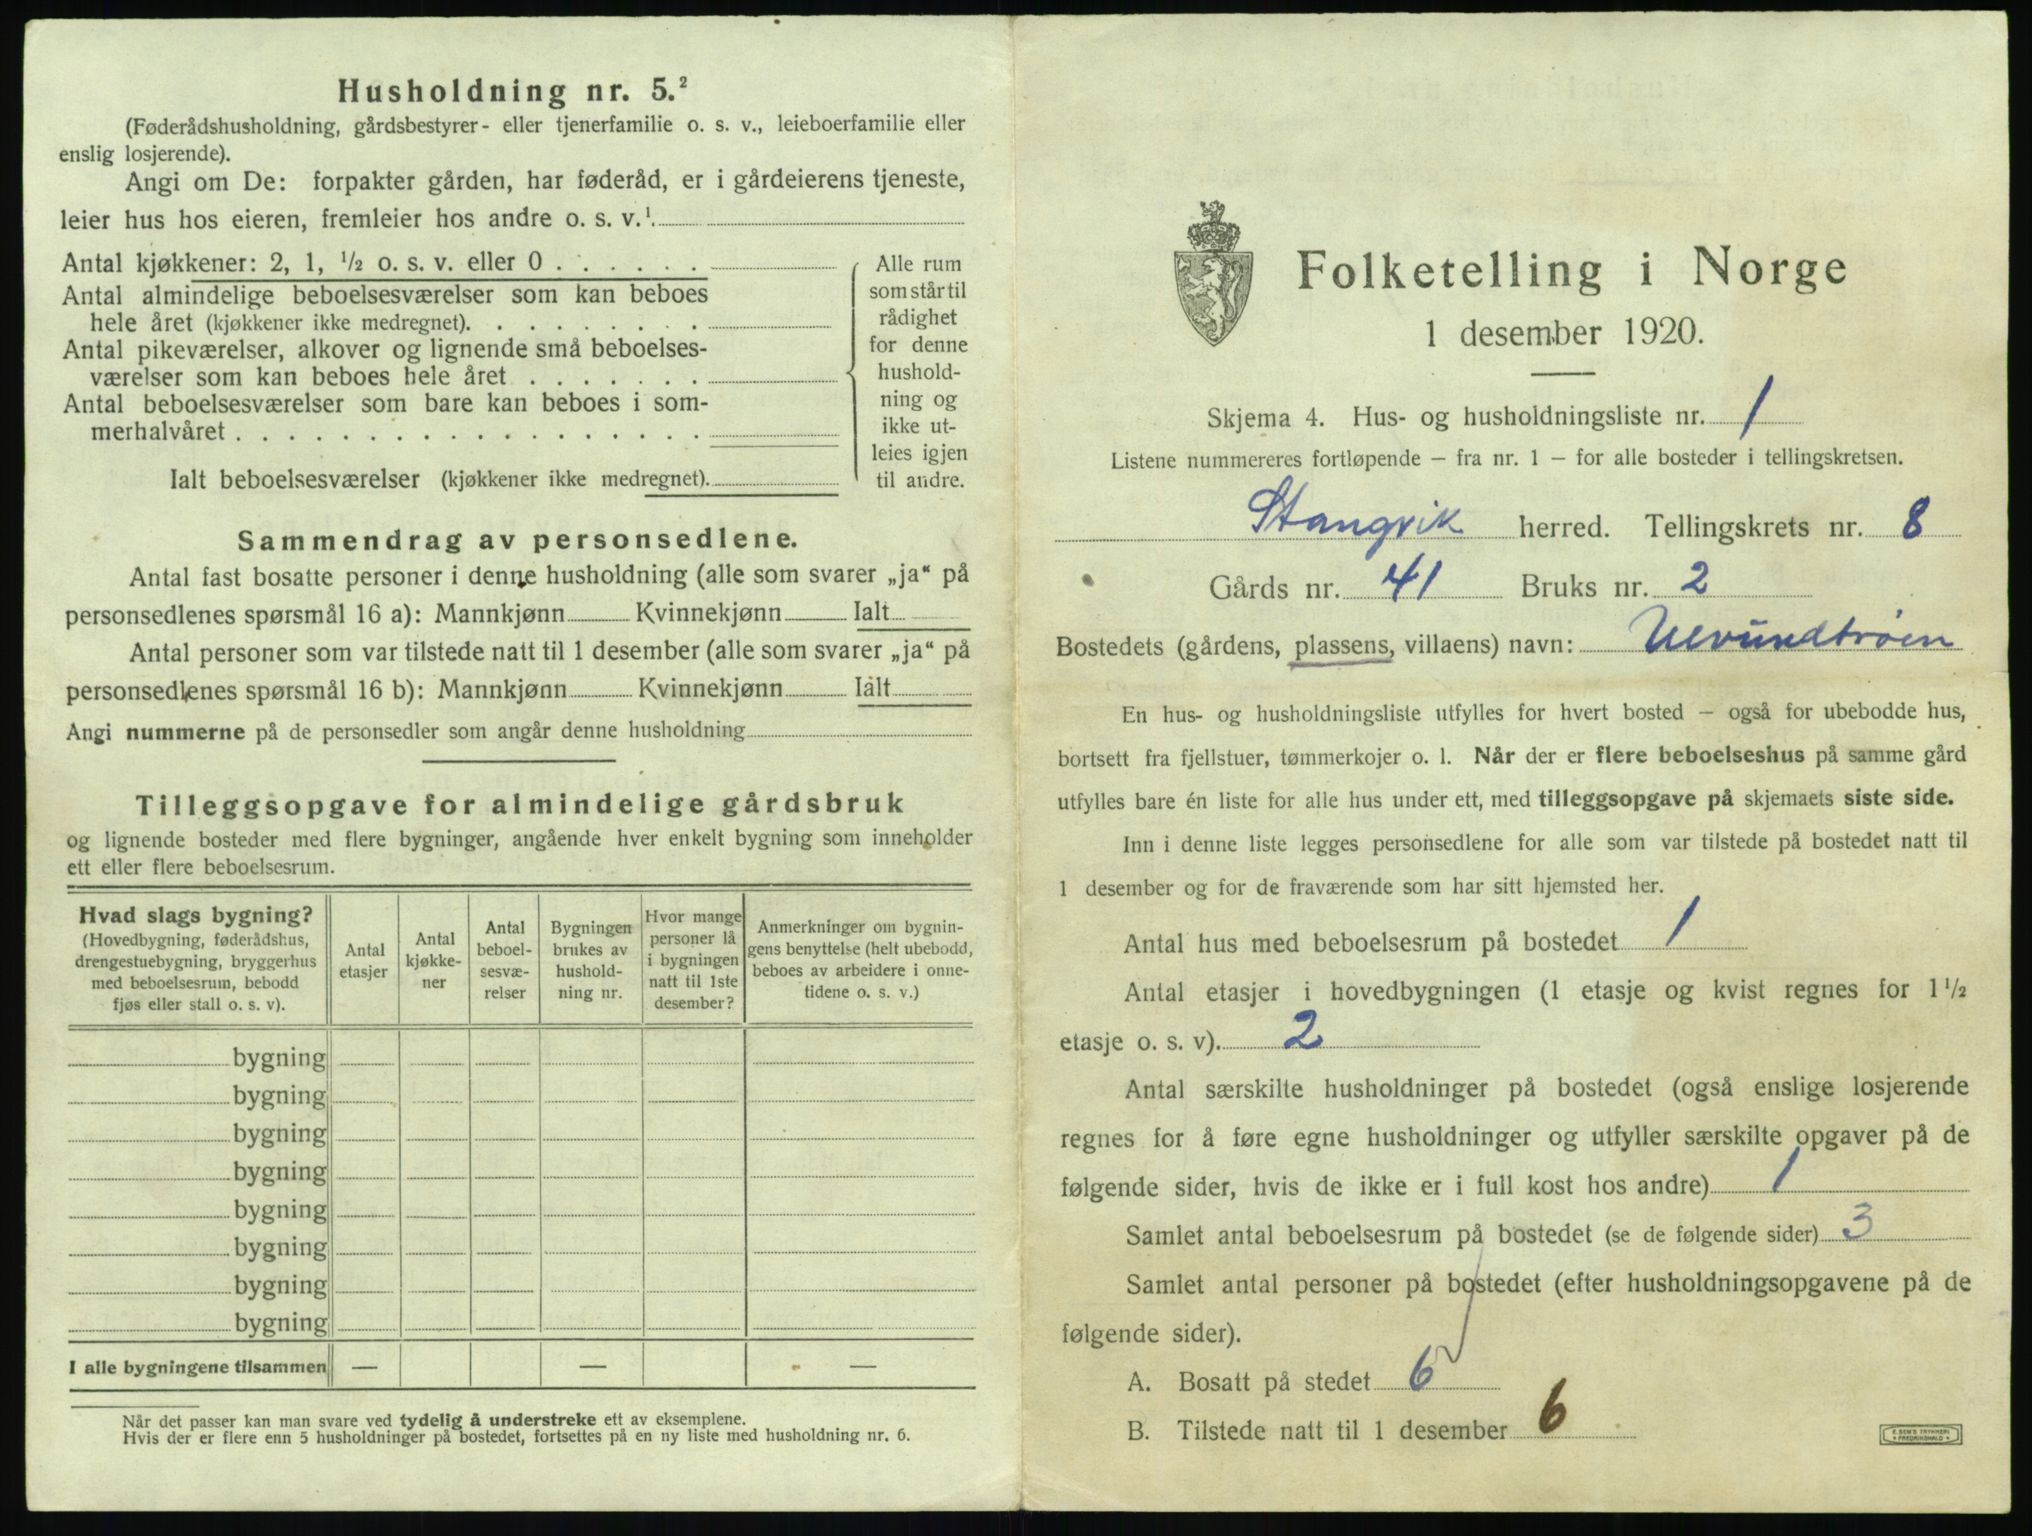 Husholdning nr. 5.²
(Føderådshusholdning, gårdsbestyrer- eller tjenerfamilie o. s. v., leieboerfamilie eller
enslig losjerende).
Angi om De: forpakter gården, har føderåd, er i gårdeierens tjeneste,
leier hus hos eieren, fremleier hos andre o. s. v.¹
Antal kjøkkener: 2, 1, ½ o. s. v. eller 0 . . . . . .
Antal almindelige beboelsesværelser som kan beboes
hele året (kjøkkener ikke medregnet). . . . . . . . .
Antal pikeværelser, alkover og lignende små beboelses-
værelser som kan beboes hele året . . . . . . .
Antal beboelsesværelser som bare kan beboes i som-
merhalvåret . . . . . . . . . . . . . . . . . .
Ialt beboelsesværelser (kjøkkener ikke medregnet).
Alle rum
som står til
rådighet
for denne
hushold-
ning og
ikke ut-
leies igjen
til andre.
Sammendrag av personsedlene.
Antal fast bosatte personer i denne husholdning (alle som svarer „ja“ på
personsedlenes spørsmål 16 a): Mannkjønn Kvinnekjønn Ialt
Antal personer som var tilstede natt til 1 desember (alle som svarer „ja“ på
personsedlenes spørsmål 16 b): Mannkjønn Kvinnekjønn Ialt
Angi nummerne på de personsedler som angår denne husholdning
Tilleggsopgave for almindelige gårdsbruk
og lignende bosteder med flere bygninger, angående hver enkelt bygning som inneholder
ett eller flere beboelsesrum.
Hvad slags bygning?
(Hovedbygning, føderådshus,
drengestuebygning, bryggerhus
med beboelsesrum, bebodd
fjøs eller stall o. s. v).
Antal
etasjer
Antal
kjøkke-
ner
Antal
beboel-
sesvæ-
relser
Bygningen
brukes av
hushold-
ning nr.
Hvor mange
personer lå
i bygningen
natt til 1ste
desember?
Anmerkninger om bygnin-
gens benyttelse (helt ubebodd,
beboes av arbeidere i onne-
tidene o. s. v.)
bygning
bygning
bygning
bygning
bygning
bygning
bygning
bygning
I alle bygningene tilsammen — — —
Når det passer kan man svare ved tydelig å understreke ett av eksemplene.
Hvis der er flere enn 5 husholdninger på bostedet, fortsettes på en ny liste med husholdning nr. 6.
Folketelling i Norge
1 desember 1920.
Skjema 4. Hus- og husholdningsliste nr. 1
Listene nummereres fortløpende – fra nr. 1 – for alle bosteder i tellingskretsen.
Stangvik herred. Tellingskrets nr. 8
Gårds nr. 41 Bruks nr. 2
Bostedets (gårdens, plassens, villaens) navn: Ulvundtrøen
En hus- og husholdningsliste utfylles for hvert bosted – også for ubebodde hus,
bortsett fra fjellstuer, tømmerkojer o. l. Når der er flere beboelseshus på samme gård
utfylles bare én liste for alle hus under ett, med tilleggsopgave på skjemaets siste side.
Inn i denne liste legges personsedlene for alle som var tilstede på bostedet natt til
1 desember og for de fraværende som har sitt hjemsted her.
Antal hus med beboelsesrum på bostedet 1
Antal etasjer i hovedbygningen (1 etasje og kvist regnes for 1½
etasje o. s. v). 2
Antal særskilte husholdninger på bostedet (også enslige losjerende
regnes for å føre egne husholdninger og utfyller særskilte opgaver på de
følgende sider, hvis de ikke er i full kost hos andre) 1
Samlet antal beboelsesrum på bostedet (se de følgende sider) 3
Samlet antal personer på bostedet (efter husholdningsopgavene på de
følgende sider).
A. Bosatt på stedet 6
B. Tilstede natt til 1 desember 6
E. SEM'S TRYKKERI
FREDRIKSHALD